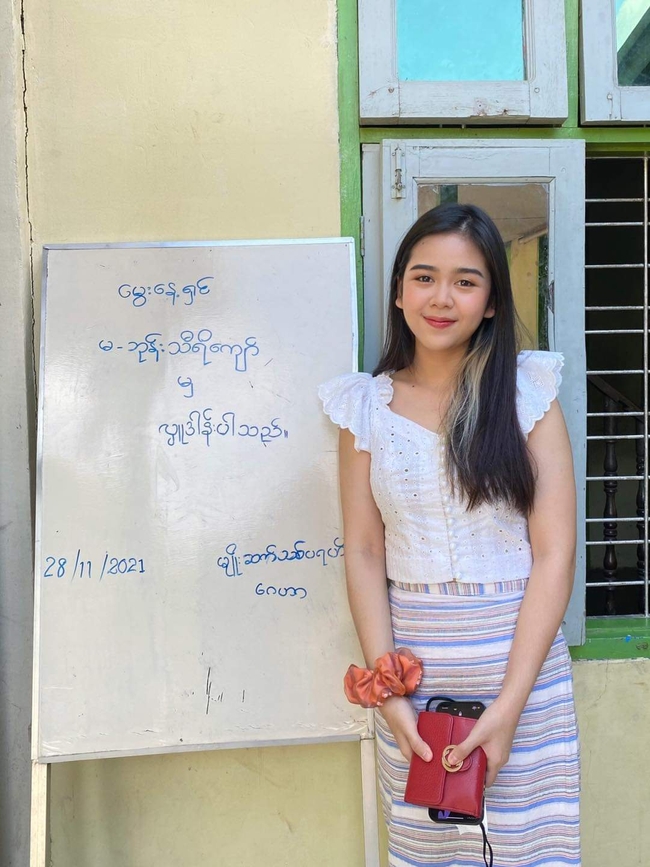 မွေးနေ့ရှင်
မ-ဘုန်းသီရိကျော်
မှ
လှူဒါန်းပါသည်။
28/11/2021
မျိုးဆက်သစ်ပရဟိ
ဂေဟာ